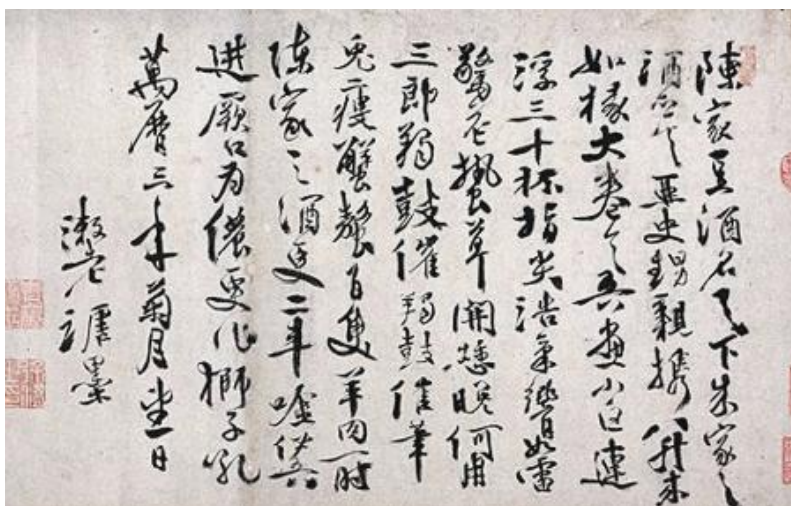 陳家豆酒名天下朱家之
酒亦其亞史甥親攜八升來
如椽大卷令吾畫小白連
浮三十杯指尖浩氣響如雷
驚花蟄草開愁晚何用
三郎羯鼓催羯鼓催筆
兔瘦蟹螯百隻羊肉一肘
陳家之酒更二斗吟伊吾
迸厥口為儂更作獅子吼
萬曆三年菊月望一日
漱老謔墨